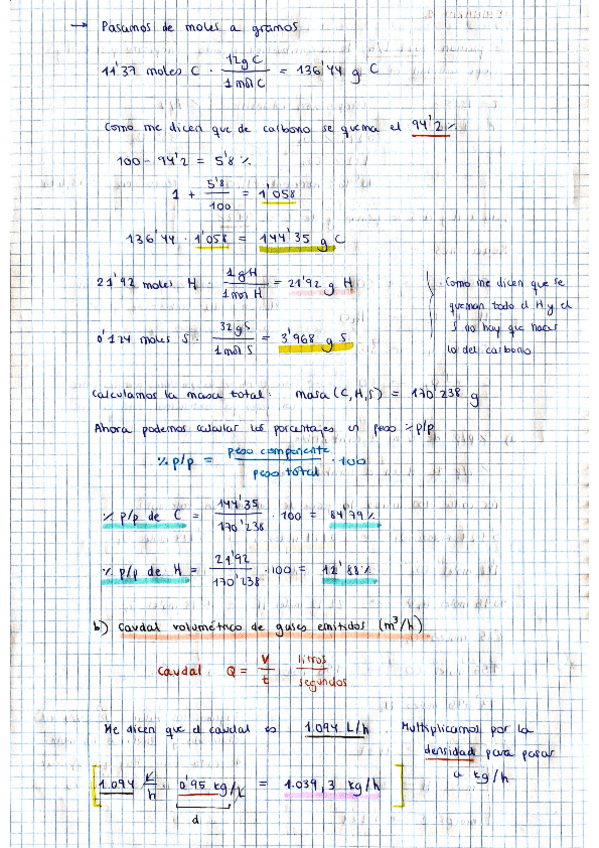 → Pasamos de moles a gramos
11'37 moles C · 12g C / 1 mol C = 136'44 g C
Como me dicen que de carbono se quema el 94'2 %
100 - 94'2 = 5'8 %
1 + 5'8 / 100 = 1'058
136'44 · 1'058 = 144'35 g C
21'92 moles H · 1 g H / 1 mol H = 21'92 g H
Como me dicen que se
queman todo el H y el
S no hay que hacer
lo del carbono
0'124 moles S · 32 g S / 1 mol S = 3'968 g S
Calculamos la masa total: masa (C, H, S) = 170'238 g
Ahora podemos calcular los porcentajes en peso % p/p
% p/p = peso componente / peso total · 100
% p/p de C = 144'35 / 170'238 · 100 = 84'79 %
% p/p de H = 21'92 / 170'238 · 100 = 12'88 %
b) Caudal volumétrico de gases emitidos (m³/h)
Caudal Q = V / t litros / segundos
Me dicen que el caudal es 1.094 L/h. Multiplicamos por la
densidad para pasar
a kg/h
[1.094 L/h · 0'95 kg/L = 1.039,3 kg/h]
d